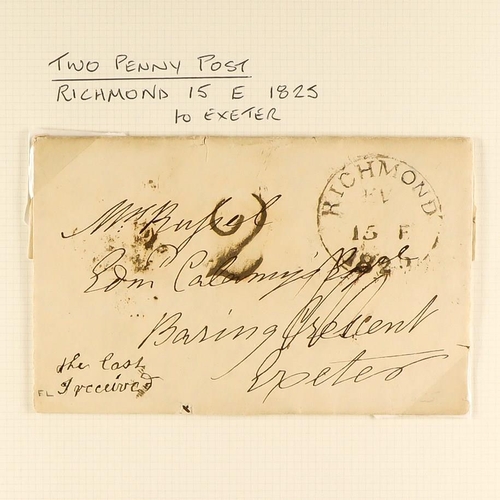 TWO PENNY POST
RICHMOND 15 E 1825
to EXETER
RICHMOND
15 F
1825
2
Mrs Russel
Edm Calamy's Esqr
Baring Crescent
Exeter
the last
I received
FL